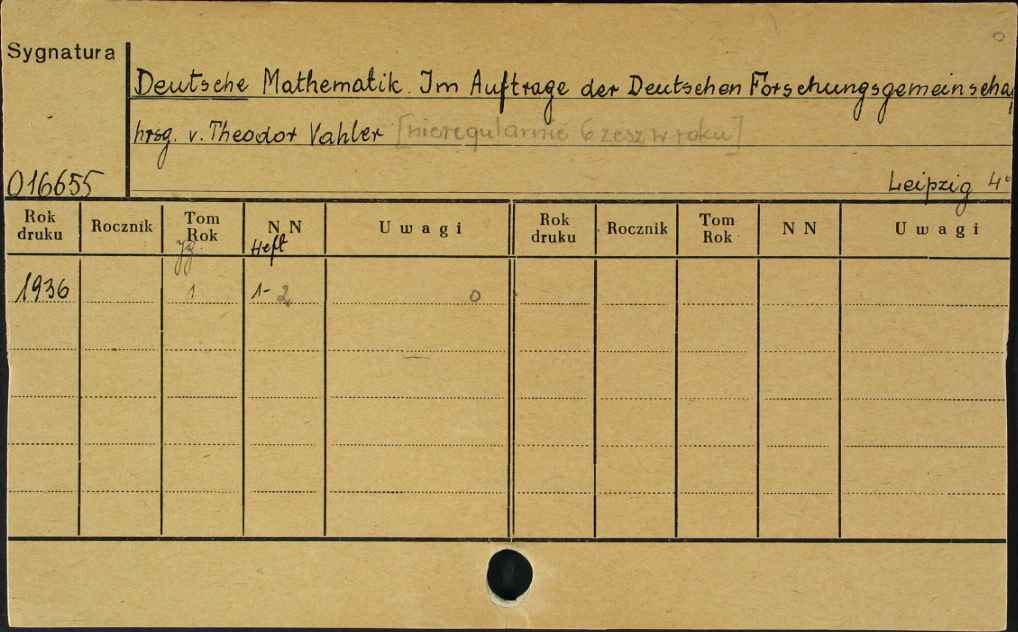 Sygnatura
Deutsche Mathematik. Im Auftrage der Deutschen Forschungsgemeinscha
hrsg. v. Theodor Vahler [nieregularnie 6 zesz w roku]
016655 Leipzig 4°
Rok druku Rocznik Tom Rok N N U w a g i Rok druku Rocznik Tom Rok N N U w a g i
Jg. Heft
1936 1 1-2 0